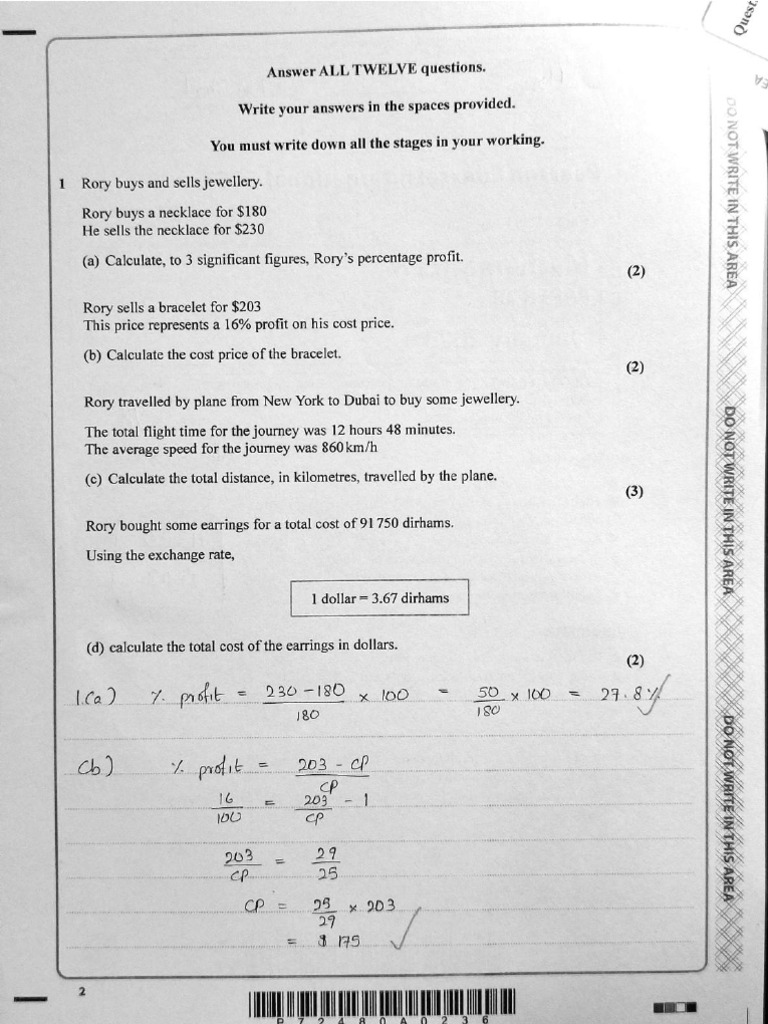 Quest
EA
Answer ALL TWELVE questions.
Write your answers in the spaces provided.
You must write down all the stages in your working.
1 Rory buys and sells jewellery.
Rory buys a necklace for $180
He sells the necklace for $230
(a) Calculate, to 3 significant figures, Rory's percentage profit.
(2)
Rory sells a bracelet for $203
This price represents a 16% profit on his cost price.
(b) Calculate the cost price of the bracelet.
(2)
Rory travelled by plane from New York to Dubai to buy some jewellery.
The total flight time for the journey was 12 hours 48 minutes.
The average speed for the journey was 860 km/h
(c) Calculate the total distance, in kilometres, travelled by the plane.
(3)
Rory bought some earrings for a total cost of 91 750 dirhams.
Using the exchange rate,
1 dollar = 3.67 dirhams
(d) calculate the total cost of the earrings in dollars.
(2)
1.(a) % profit = 230 - 180 / 180 × 100 = 50 / 180 × 100 = 27.8% ✓
(b) % profit = 203 - CP / CP
16 / 100 = 203 / CP - 1
203 / CP = 29 / 25
CP = 25 / 29 × 203
= $ 175 ✓
2
P 7 2 4 8 0 A 0 2 3 6
DO NOT WRITE IN THIS AREA
DO NOT WRITE IN THIS AREA
DO NOT WRITE IN THIS AREA